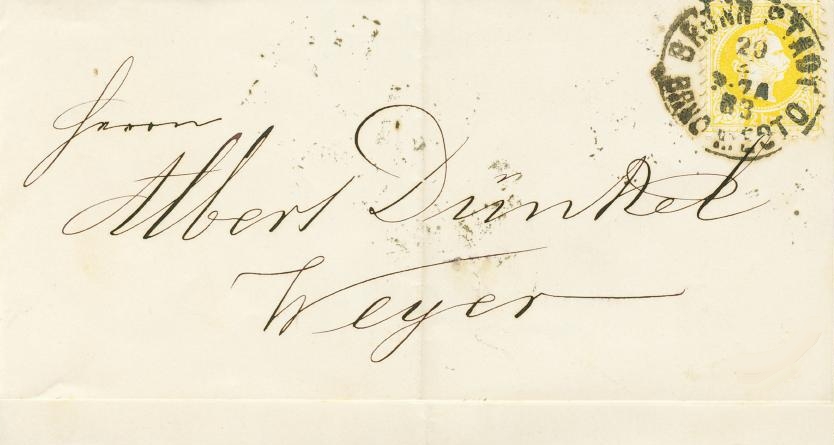 BRÜNN STADT
20
7A
83
BRNO MĚSTO
Herrn
Albert Dünkel
Weyer